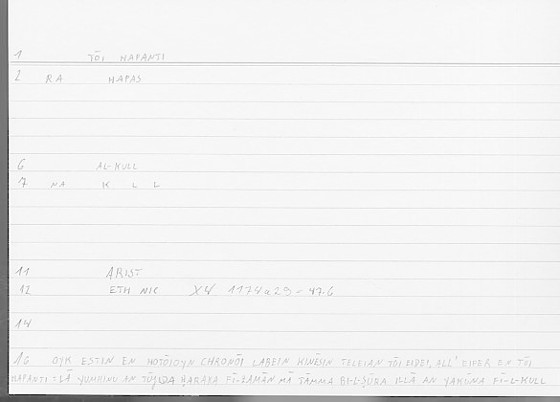 1 TŌI HAPANTI
2 RA HAPAS
6 AL-KULL
7 NA K L L
11 ARIST
12 ETH NIC X4 1174a29 = 47.6
14
16 OYK ESTIN EN HOTŌIOYN CHRONŌI LABEIN KINĒSIN TELEIAN TŌI EIDEI, ALL' EIPER EN TŌI
HAPANTI = LĀ YUMKINU AN TŪǦADA ḤARAKA FĪ-ZAMĀN MĀ TĀMMA BI-L-ṢŪRA ILLĀ AN YAKŪNA FĪ-L-KULL